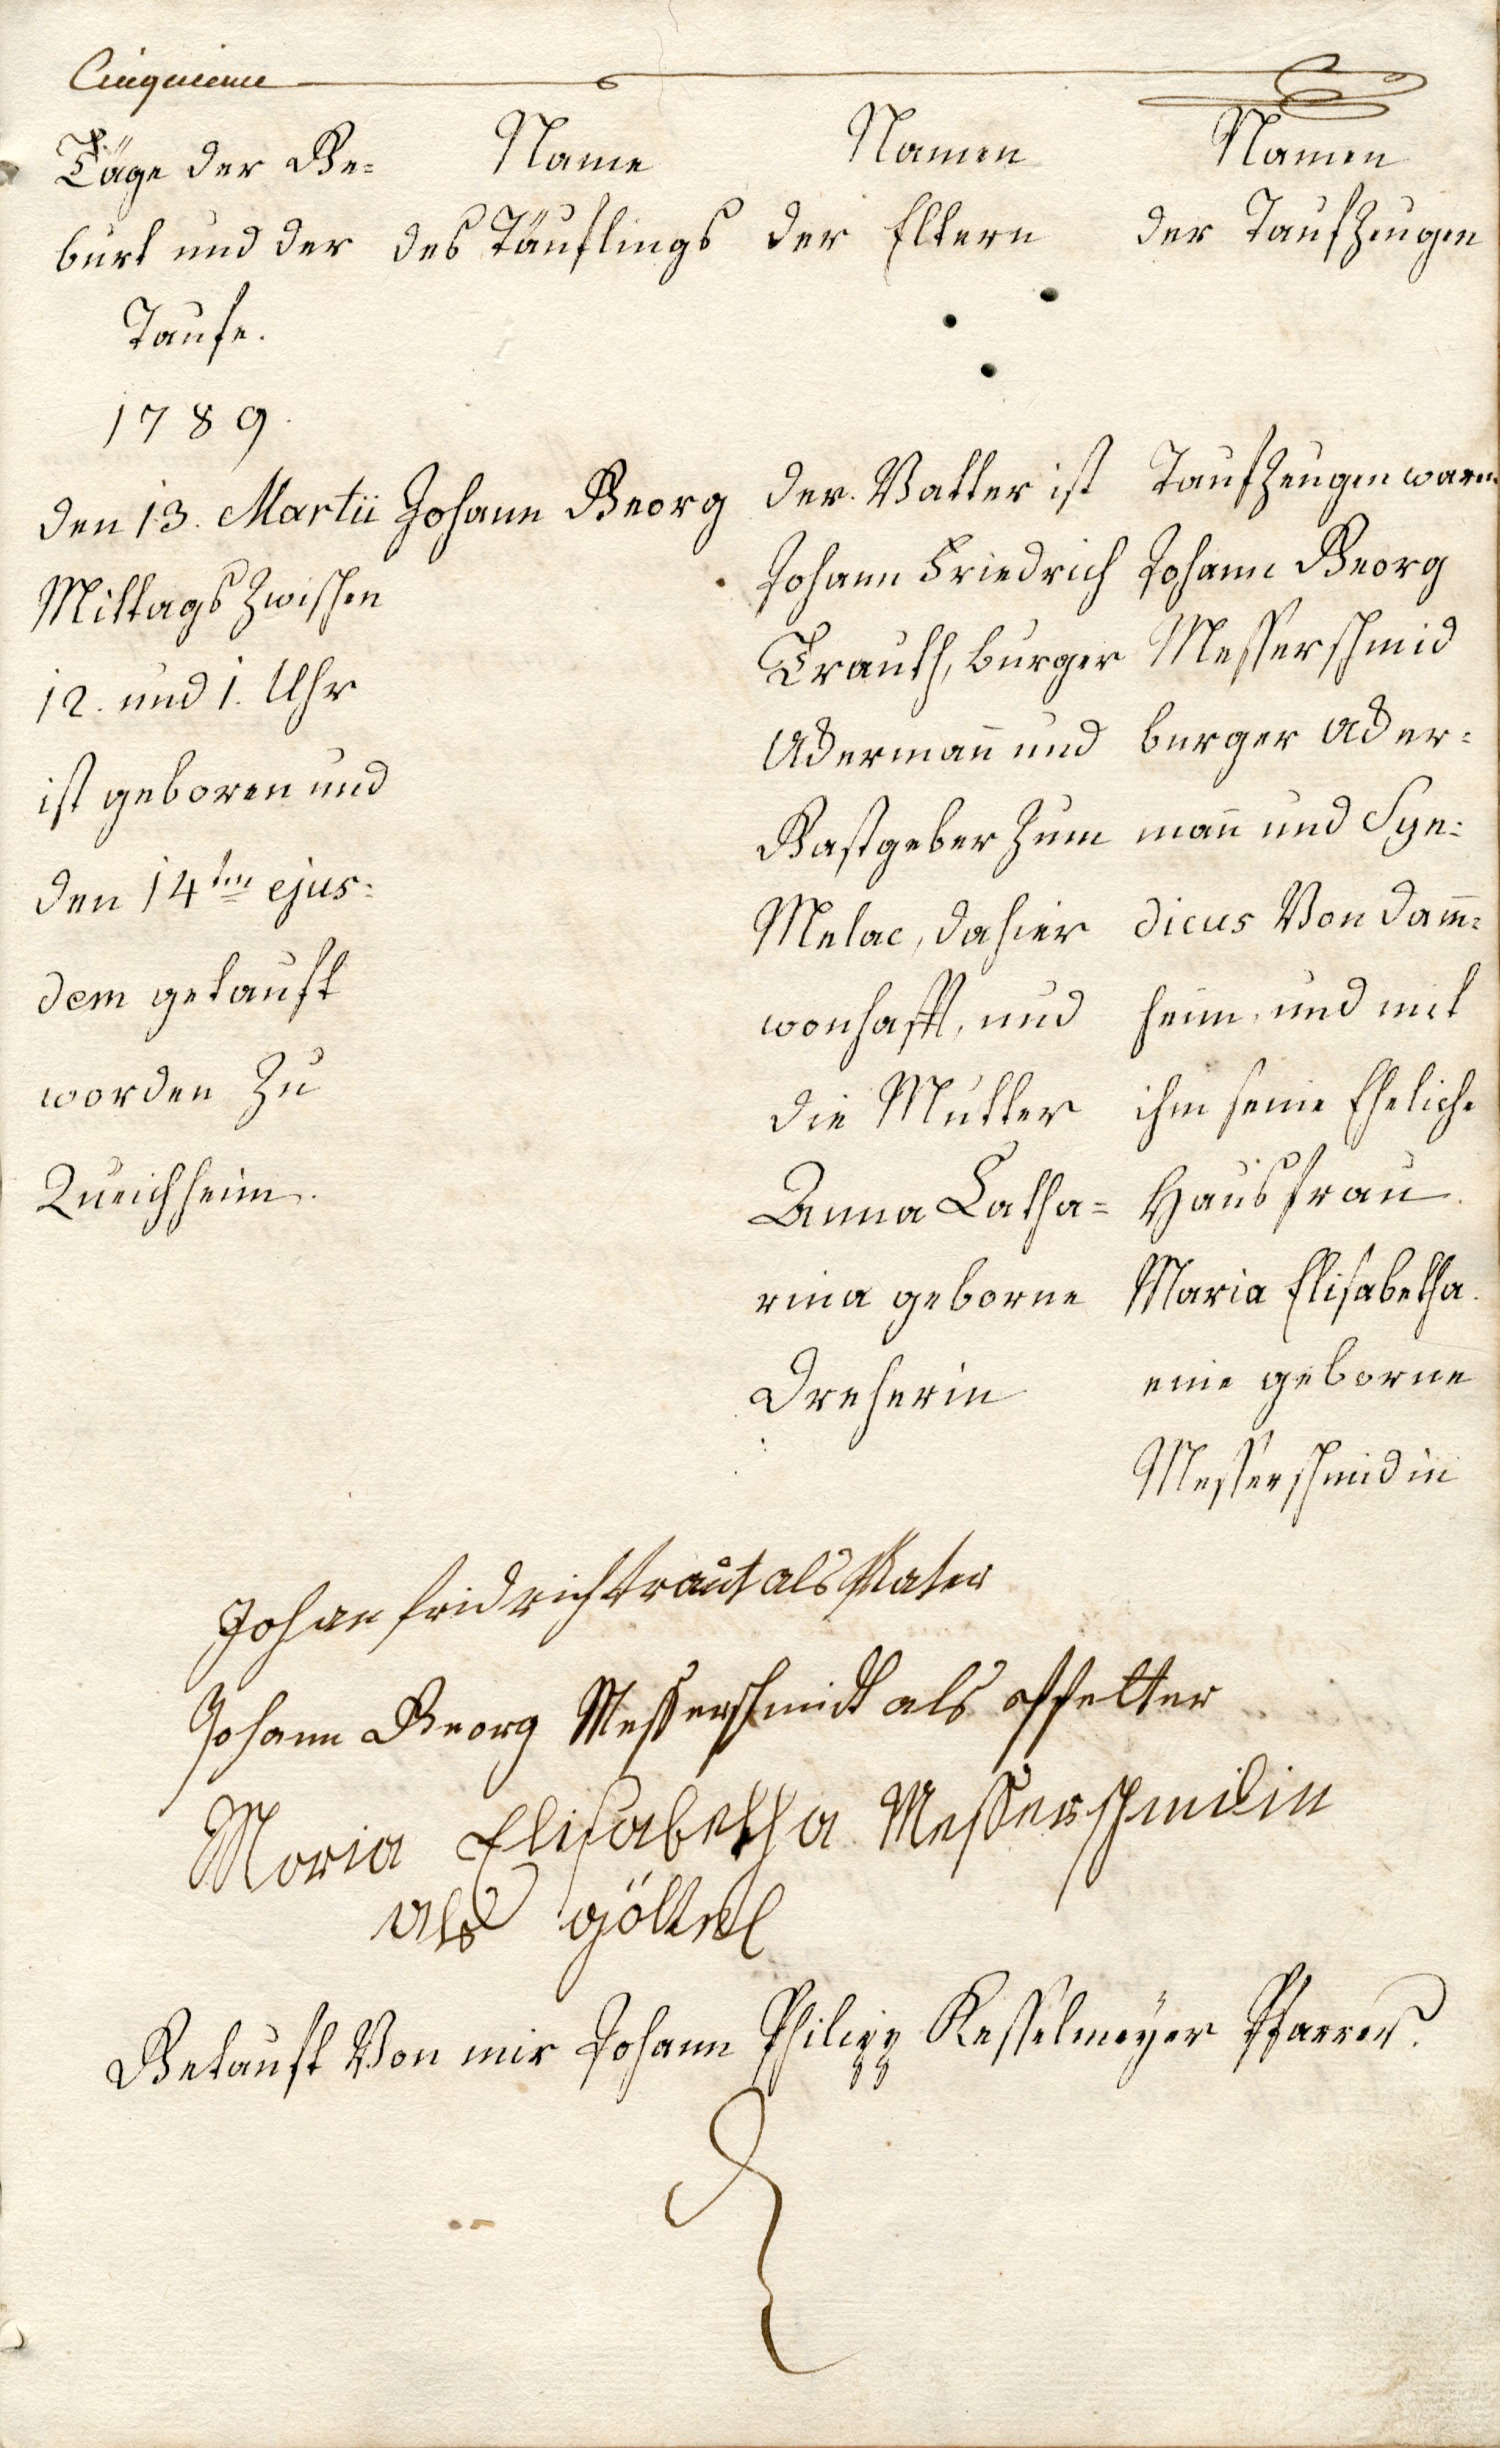 Cinquieme
Täge der Ge=
burt und der
Taufe.
1789.
den 13. Martii
Mittags zwischen
12. und 1. Uhr
ist geboren und
den 14ten ejus=
dem getauft
worden zu
Queichheim.
Name
des Täuflings
Johann Georg
Namen
der Eltern
der Vatter ist
Johann Friedrich
Trauth, burger
Ackerman̄ und
Gastgeber zum
Melac, dahier
wonhafft, und
die Mutter
Anna Catha=
rina geborne
Dreherin
Namen
der Taufzeugen
Taufzeugen waren
Johann Georg
Messerschmid
burger Acker=
man̄ und Syn=
dicus von Dam̄=
heim, und mit
ihm seine Eheliche
Hausfrau
Maria Elisabetha
eine geborne
Messerschmidin
Johan fridrich traut als Vater
Johann Georg Messerschmidt als
Maria Elisabetha Messerschmidin
als
Getauft von mir Johann Philipp Kesselmeyer Pfarrer.